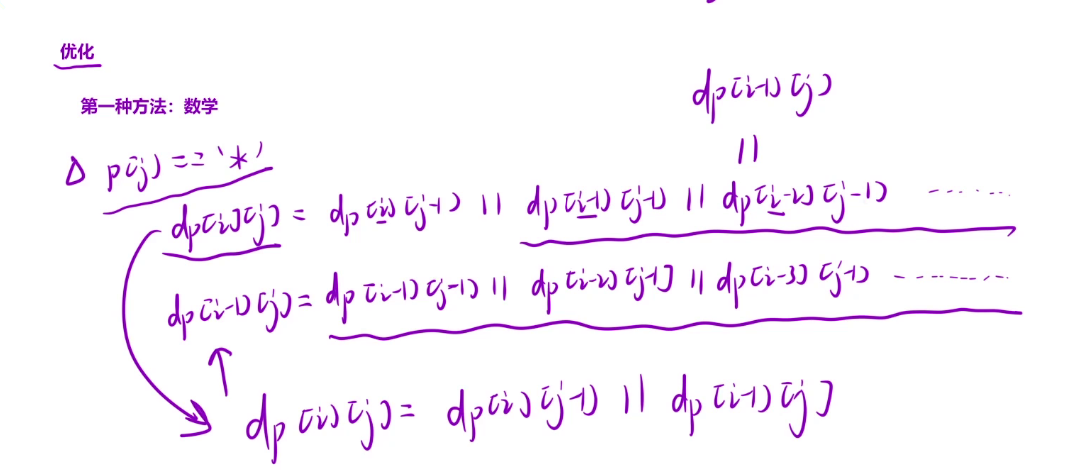 优化
第一种方法：数学
dp[i-1][j]
||
△ p[j] == '*'
dp[i][j] = dp[i][j-1] || dp[i-1][j-1] || dp[i-2][j-1] ........
dp[i-1][j] = dp[i-1][j-1] || dp[i-2][j-1] || dp[i-3][j-1] ........
dp[i][j] = dp[i][j-1] || dp[i-1][j]